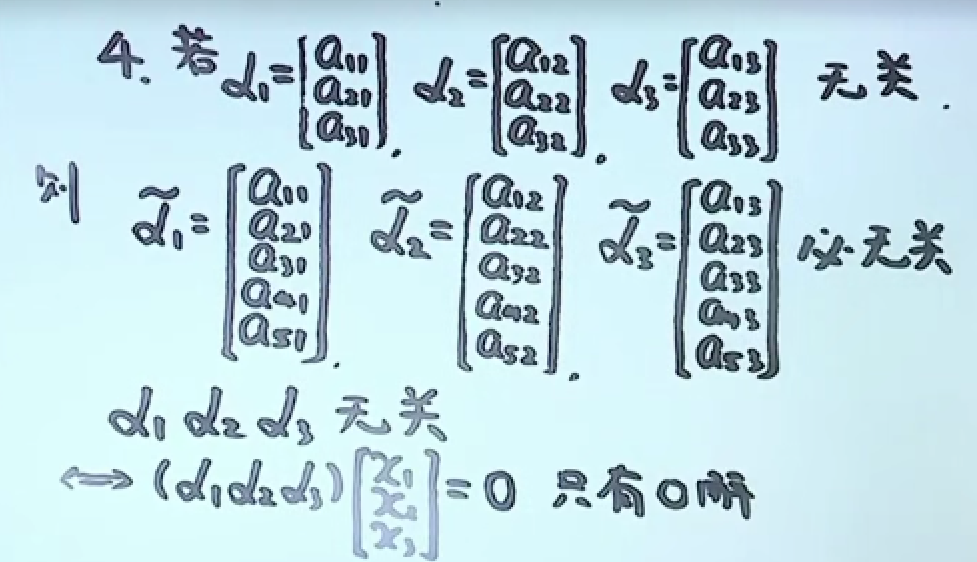 4. 若 α₁=[a₁₁ a₂₁ a₃₁], α₂=[a₁₂ a₂₂ a₃₂], α₃=[a₁₃ a₂₃ a₃₃] 无关.
则 α̃₁=[a₁₁ a₂₁ a₃₁ a₄₁ a₅₁], α̃₂=[a₁₂ a₂₂ a₃₂ a₄₂ a₅₂], α̃₃=[a₁₃ a₂₃ a₃₃ a₄₃ a₅₃] 必无关
α₁ α₂ α₃ 无关
⟺ (α₁α₂α₃)[x₁ x₂ x₃]=0 只有0解